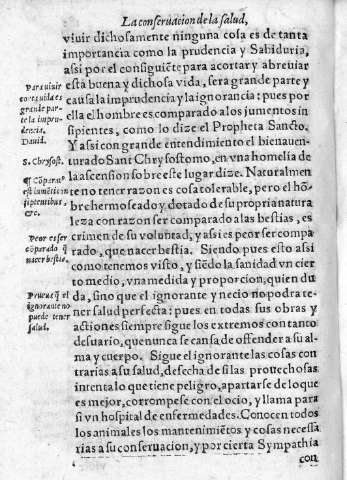 La conseruacion de la salud,
viuir dichosamente ninguna cosa es de tanta
importancia como la prudencia y Sabiduria,
assi por el consiguiẽte para acortar y abreuiar
esta buena y dichosa vida, sera grande parte y
causa la imprudencia y la ignorancia: pues por
ella el hombre es comparado a los jumentos in-
sipientes, como lo dize el Propheta Sancto.
Y assi con grande entendimiento el bienauen-
turado Sant Chrysostomo, en vna homelia de
la ascension sobre este lugar dize. Naturalmen
te no tener razon es cosa tolerable, pero el hõ-
bre hermoseado y dotado de su propria natura
leza con razon ser comparado a las bestias, es
crimen de su voluntad, y assi es peor ser compa
rado, que nacer bestia. Siendo pues esto assi
como tenemos visto, y siẽdo la sanidad vn cier
to medio, vna medida y proporcion, quien du
da, sino que el ignorante y necio no podra te-
ner salud perfecta: pues en todas sus obras y
actiones siempre sigue los extremos con tanto
desuario, que nunca se cansa de offender a su al-
ma y cuerpo. Sigue el ignorante las cosas con
trarias a su salud, desecha de si las prouechosas
intenta lo que tiene peligro, apartase de lo que
es mejor, corrompese con el ocio, y llama para
si vn hospital de enfermedades. Conocen todos
los animales los mantenimiẽtos y cosas necessa
rias a su conseruacion, y por cierta Sympathia
con
Para viuir
grande par-
te la impru-
dencia.
Dauid.
S. Chrysost.
¶ Cõpara9
est iumẽtis in
sipientibus,
&c.
Peor es ser
cõparado q̃
nacer bestia.
Prueua q̃ el
ignorante no
puede tener
salud.